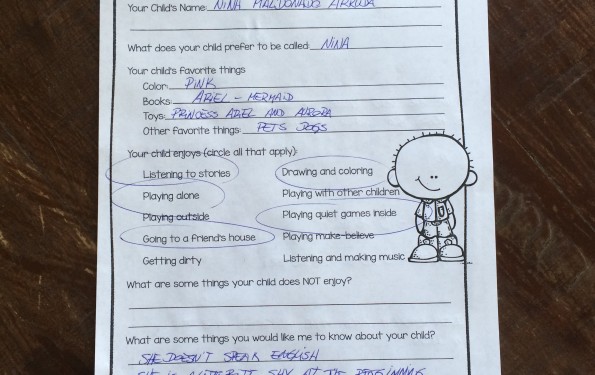 Your Child's Name: NINA MALDONADO ARRUDA
What does your child prefer to be called: NINA
Your child's favorite things
Color: PINK
Books: ARIEL - MERMAID
Toys: PRINCESS ARIEL AND AURORA
Other favorite things: PETS DOGS
Your child enjoys (circle all that apply):
Listening to stories Drawing and coloring
Playing alone Playing with other children
Playing outside Playing quiet games inside
Going to a friend's house Playing make-believe
Getting dirty Listening and making music
What are some things your child does NOT enjoy?
What are some things you would like me to know about your child?
SHE DOESN'T SPEAK ENGLISH
SHE IS SHY AT THE BEGINNING